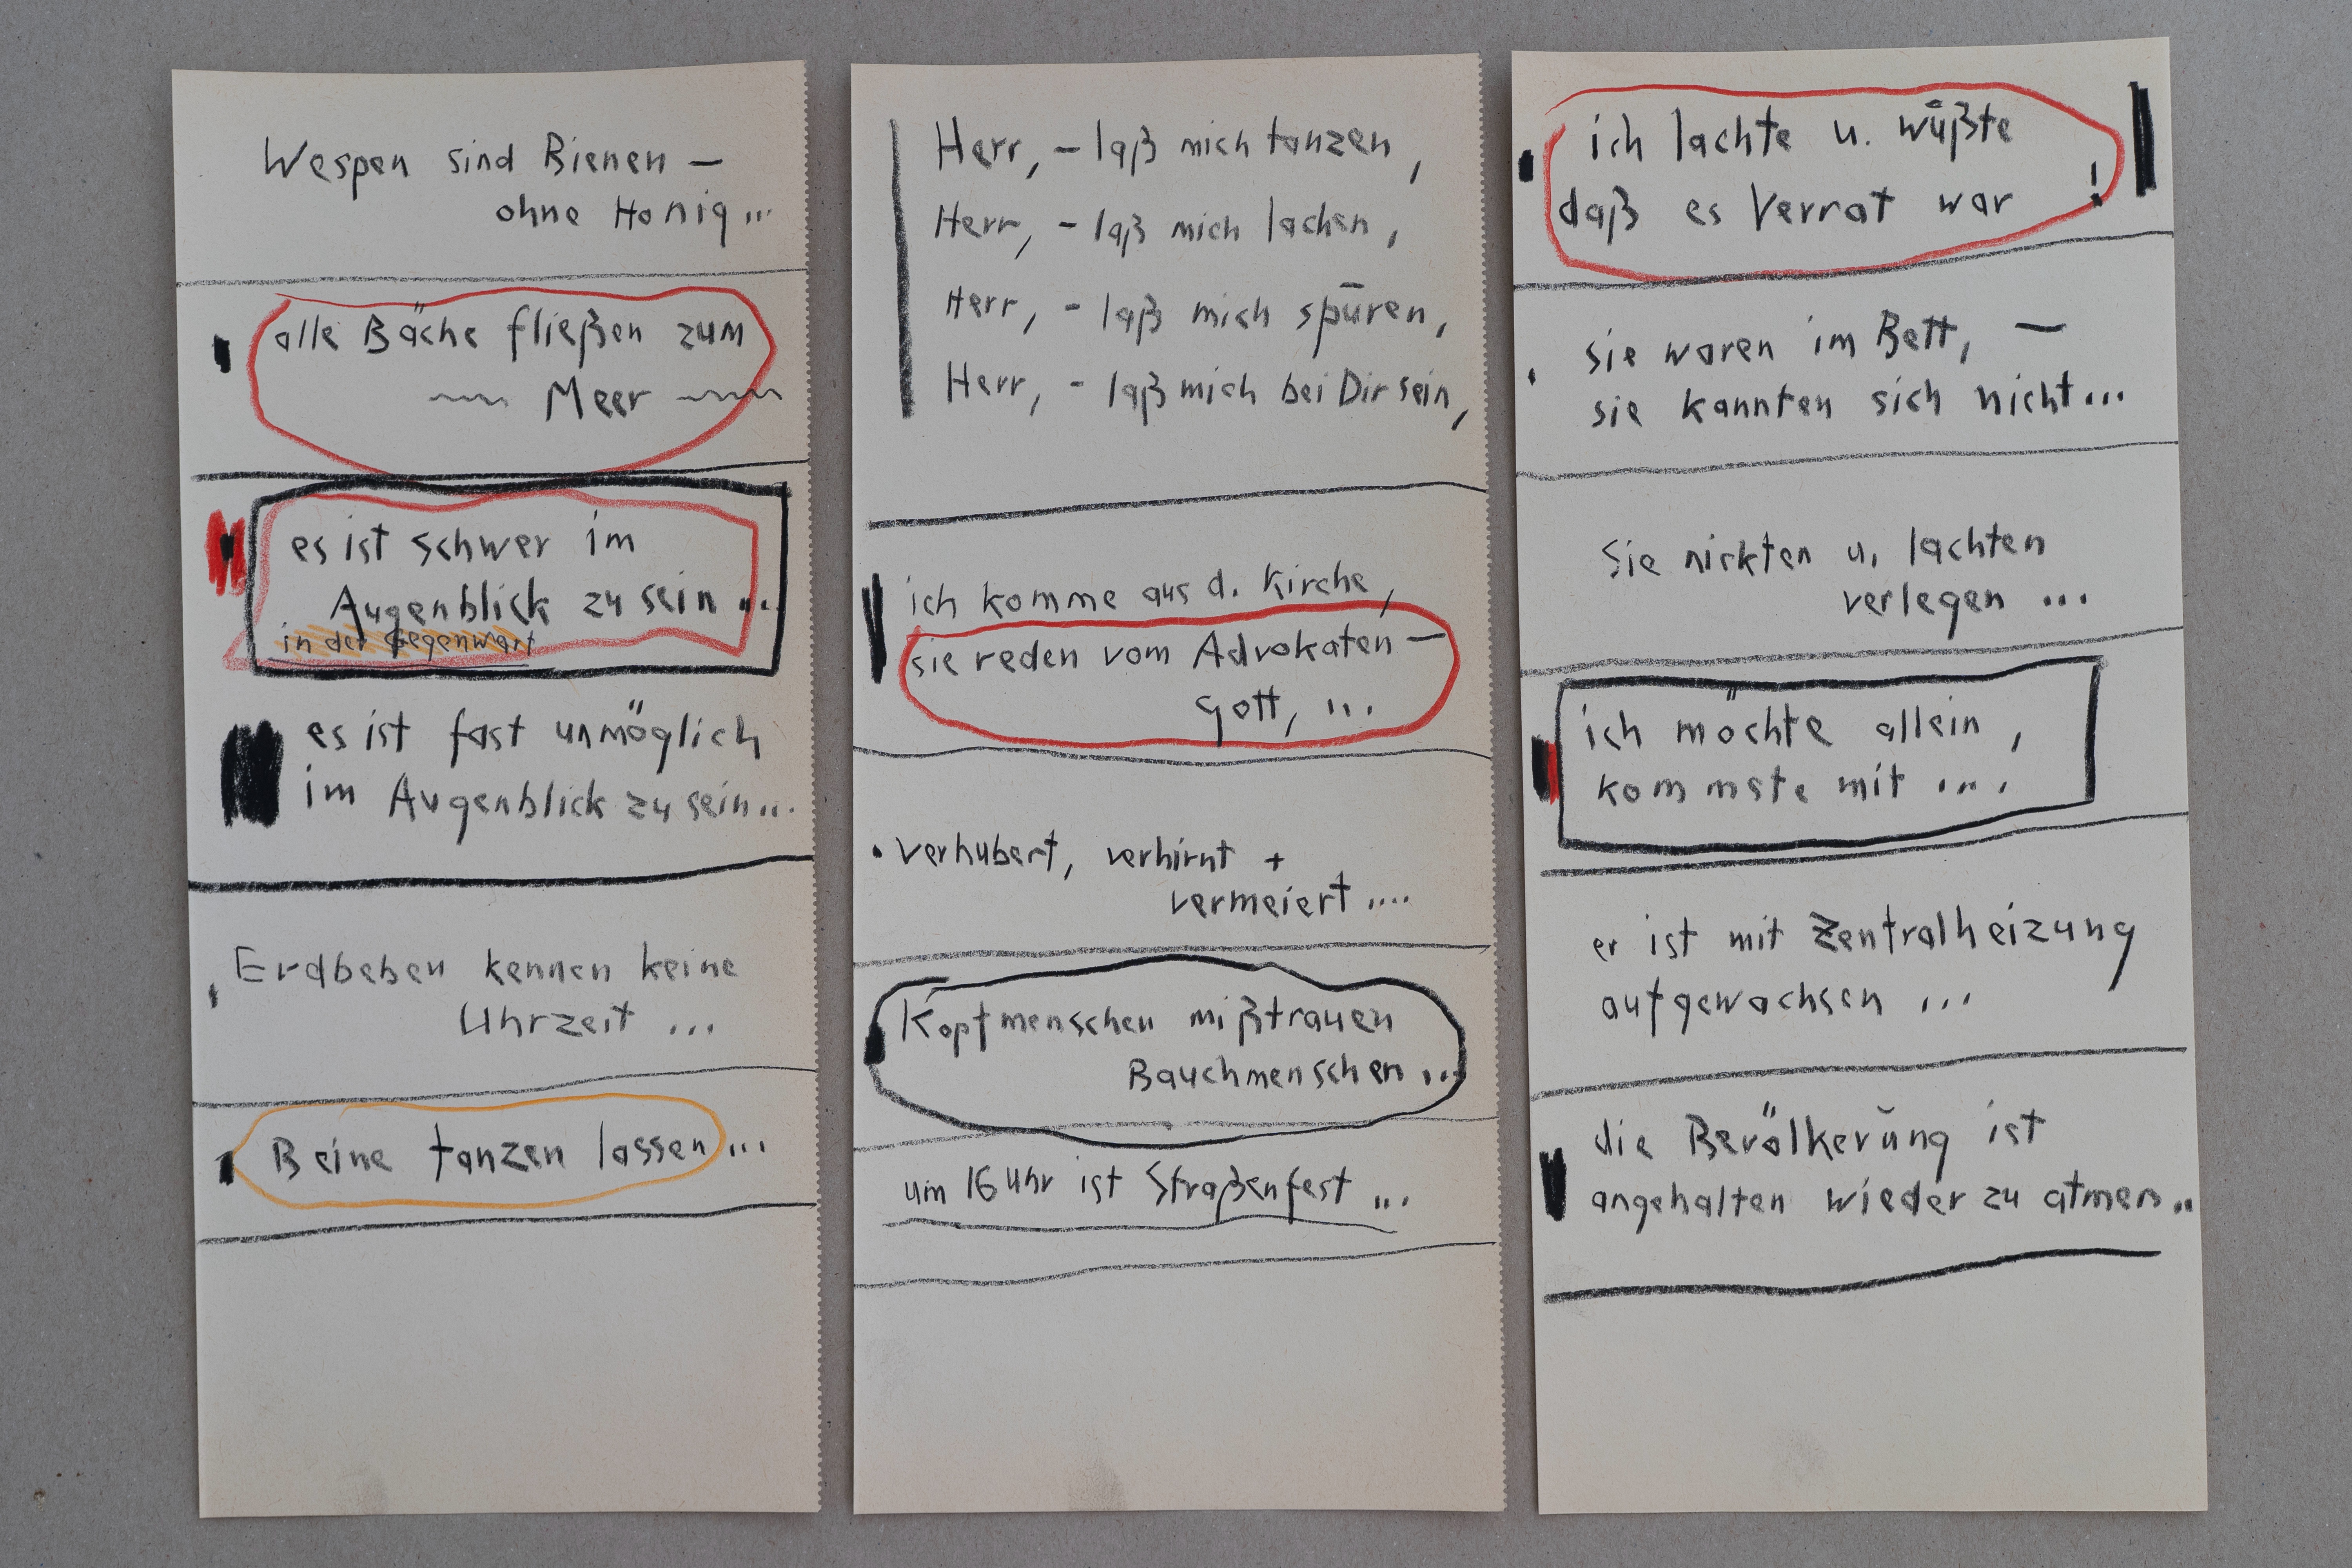 Wespen sind Bienen –
ohne Honig...
alle Bäche fließen zum
~~ Meer ~~
es ist schwer im
Augenblick zu sein ...
in der Gegenwart
es ist fast unmöglich
im Augenblick zu sein...
Erdbeben kennen keine
Uhrzeit ...
Beine tanzen lassen...
Herr, – laß mich tanzen,
Herr, – laß mich lachen,
Herr, – laß mich spüren,
Herr, – laß mich bei Dir sein,
ich komme aus d. Kirche,
sie reden vom Advokaten –
Gott, ...
verhubert, verhirnt +
vermeiert ....
Kopfmenschen mißtrauen
Bauchmenschen ...
um 16 Uhr ist Straßenfest ...
ich lachte u. wüßte
daß es Verrat war !
sie waren im Bett, –
sie kannten sich nicht...
Sie nickten u. lachten
verlegen ...
ich möchte allein,
kommste mit ....
er ist mit Zentralheizung
aufgewachsen ...
die Bevölkerung ist
angehalten wieder zu atmen..